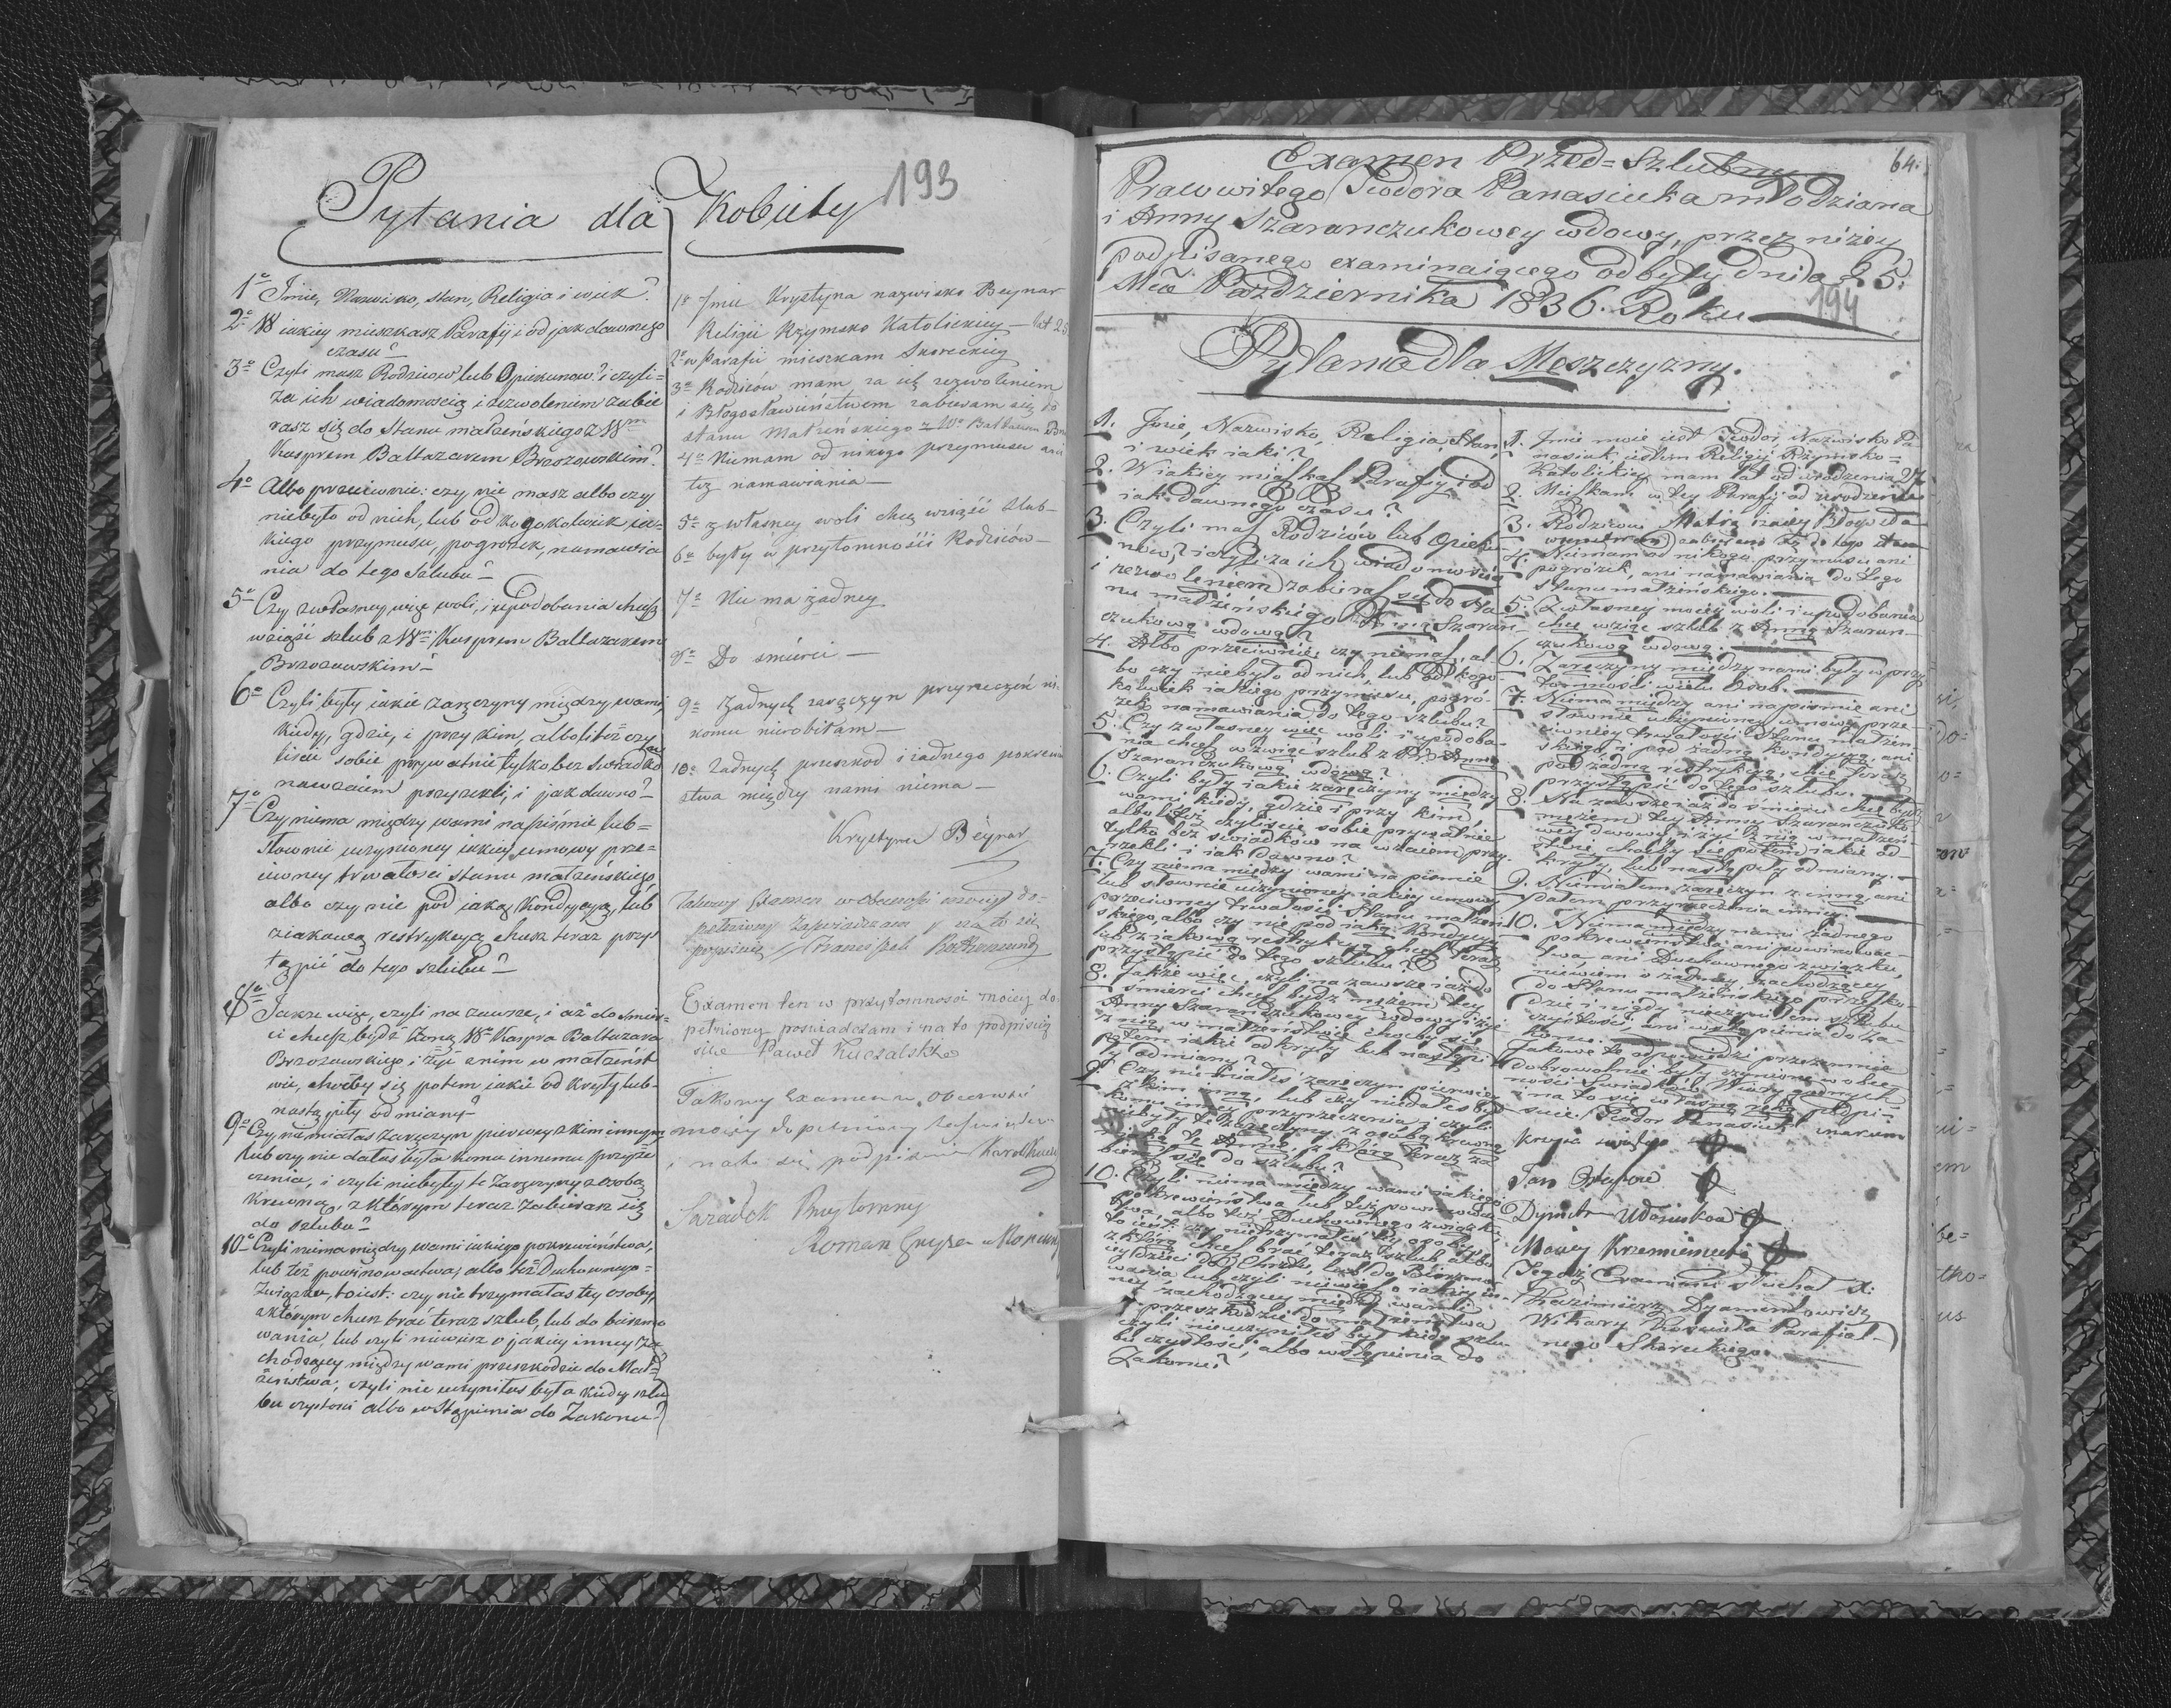 193
Pytania dla Kobiety
1o Jmie, Nazwisko, stan, Religia i wiek?
2o W iakiey mieszkasz Parafij i od jak dawnego
czasu?
3o Czyli masz Rodzicow lub Opiekunow? i czyli=
za ich wiadomością i zezwoleniem zabie
rasz się do Stanu małżeńskiego z Wm
Kasprem Baltazarem Brzozowskim?
4o Albo przeciwnie: czy nie masz albo czy
niebyło od nich, lub od kogokolwiek ia=
kiego przymusu, pogrozek, namawia
nia do tego Szlubu?
5o Czy z własney więc woli, i upodobania chcesz
wziąść szlub z Wm Kasprem Baltazarem
Brzozowskim?
6o Czyli były iakie zaręczyny między wami,
kiedy, gdzie, i przy kim, albo liteż czy
liście sobie prywatnie tylko bez Swiadkow
nawzaiem przyrzekli, i jak dawno?
7o Czy niema między wami na piśmie lub=
słownie uczynioney iakiey umowy prze=
ciwney trwałości stanu małżeńskiego,
albo czy nie pod iaką Kondycyą, lub
z iakową restrykcyą chcesz teraz przys
tąpić do tego szlubu?
8o Jakże więc, czyli na zawsze, i aż do śmier=
ci chcesz bydź Żoną Wo Kaspra Baltazara
Brzozowskiego i żyć z nim w małżeńst
wie, choćby się potem iakie odkryły lub-
nastąpiły odmiany?
9o Czy nie miałaś zaręczyn pierwey z kim innym,
lub czy nie dałaś była komu innemu przyrze
czenia, i czyli niebyły te Zaręczyny z osobą
Krewną, z którym teraz zabierasz się
do szlubu?
10o Czyli niema między wami iakiego pokrewieństwa,
lub też powinowactwa, albo też Duchownego=
Związku, to iest: czy nie trzymałaś tey osoby,
z którym chcesz brać teraz szlub, lub do bierzmo
wania, lub czyli niewiesz o jakiey inney za
chodzącey między wami przeszkodzie do Mał=
żeństwa; czyli nie uczyniłaś była kiedy szlu
bu czystości albo wstąpienia do Zakonu?
1o Jmie Krystyna nazwisko Beynar
Religii Rzymsko Katolickiey — lat 25
2o w Parafii mieszkam Skoreckiey
3o Rodziców mam za ich zezwoleniem
i Błogosławieństwem zabieram się do
stanu Małżeńskiego z Wm Baltazarem
4o Niemam od nikogo przymusu ani
też namawiania —
5o z własney woli chcę wziąść szlub —
6o były w przytomności Rodziców —
7o Nie ma żadney
8o Do śmierci —
9o Żadnych zaręczyn przyrzeczeń ni
komu nierobiłam —
10o Żadnych przeszkod i żadnego pokrewień
stwa między nami niema —
Krystyna Beynar
Takowy Examen w obecności moiey do-
pełniony zaświadczam i na to się
podpisuię Franciszek
Examen ten w przytomności moiey do
pełniony poswiadczam i na to podpisuię
sie Paweł
Takowy Examen w obecności
moiey dopełniony
i na to się podpisuie Karol
Swiadek Przytomny
Roman
64.
Examen Przed=Szlubny
Prawowitego Teodora Panasiuka młodziana
i Anny Szaranczukowey wdowy, przez niżey
podpisanego examinaiącego odbyty dnia 25.
Mca Pazdziernika 1836. Roku
194
Pytania dla Męszczyzny.
1. Jmie, Nazwisko, Religia, Stan,
i wiek iaki?
2. W iakiey mieszkasz Parafij i od
iak dawnego czasu?
3. Czyli masz Rodziców lub Opieku-
nów? i czyli za ich wiadomością
i zezwoleniem zabierasz się do Sta
nu małżeńskiego z Anną Szaran-
czukową wdową?
4. Albo przeciwnie, czy niemasz, al-
bo czy niebyło od nich, lub od kogo-
kolwiek iakiego przymusu, pogró-
żek, namawiania do tego szlubu?
5. Czy z własney więc woli i upodoba-
nia chcesz wziąć szlub z Anną
Szaranczukową wdową?
6. Czyli były iakie zaręczyny między
wami, kiedy, gdzie i przy kim,
albo liteż czyliście sobie prywatnie
tylko bez swiadków na wzaiem przy-
rzekli i iak dawno?
7. Czy niema między wami na pismie
lub słownie uczynioney iakiey umowy
przeciwney trwałości Stanu małżeń
skiego, albo czy nie pod iaką Kondycyą
lub z iakową restrykcyą chcesz teraz
przystąpić do tego szlubu?
8. Jakże więc, czyli na zawsze i aż do
smierci chcesz bydź mężem tey
Anny Szaranczukowey wdowy i żyć
z nią w małżeństwie choćby się
potem iakie odkryły lub nastąpi
ły odmiany?
9. Czy nie miałeś zaręczyn pierwiey
z kim inną, lub czy niedałeś był
komu inney przyrzeczenia, i czyli
niebyły te zaręczyny z osobą krewną
z którą teraz za
bierasz się do szlubu?
10. Czyli niema między wami iakiego
pokrewieństwa lub też powinowac
twa, albo też Duchownego związku,
to iest: czy nietrzymałeś tey osoby,
z którą chcesz brać teraz szlub albo
iey dzieci do Chrztu, lub do Bierzmo
wania lub czyli niewiesz o iakiey in-
ney zachodzącey między wami
przeszkodzie do małżeństwa
czyli nieuczyniłeś był kiedy szlu-
bu czystości, albo wstąpienia do
Zakonu?
1. Jmie moie iest Teodor, Nazwisko Pa
nasiuk iestem Religij Rzymsko=
Katolickiey mam lat od urodzenia 27
2. Mieszkam w tey Parafij od urodzenia
3. Rodziców
zabieram się do tego stanu
4. Niemam od nikogo przymusu ani
pogróżek, ani namawiania do tego
stanu małżeńskiego.
5. Z własney moiey woli i upodobania
chcę wziąc szlub z Anną Szaran-
czukową wdową.
6. Zaręczyny między nami były w przy
tomności wielu Osob.
7. Niema między ani na pismie ani
słownie uczynioney umowy prze
ciwney trwałości Stanu małżeń-
skiego, i pod żadną kondycyą, ani
pod żadną restrykcyą, chcę teraz
przystąpić do tego szlubu.
8. Na zawsze i aż do śmierci chcę bydź
mężem tey Anny Szaranczuko-
wey wdowy i żyć z nią w małżeń-
stwie, choćby się potem iakie od-
kryły, lub nastąpiły odmiany.
9. Niemiałem zaręczyn z inną, ani
dałem przyrzeczenia inney.
10. Niema między nami żadnego
pokrewieństwa, ani powinowac-
twa ani Duchownego związku,
niewiem o żadney zachodzącey
do Stanu małżeńskiego przeszko-
dzie, i nigdy nieczyniłem szlubu
czystości, ani wstąpienia do Za-
konu.
Jakowe te odpowiedzi przezemnie
dobrowolnie były czynione w obec
ności Swiadków Wiary godnych
i na to się własną ręką podpi-
suie. Teodor Panasiuk znakiem
Krzyża swiętego
Jan
Dymitr
Maciey
Tegoż Examinu słuchał X.
Kazimierz Dyamentowicz
Wikary Koscioła Parafial-
nego Skoreckiego.